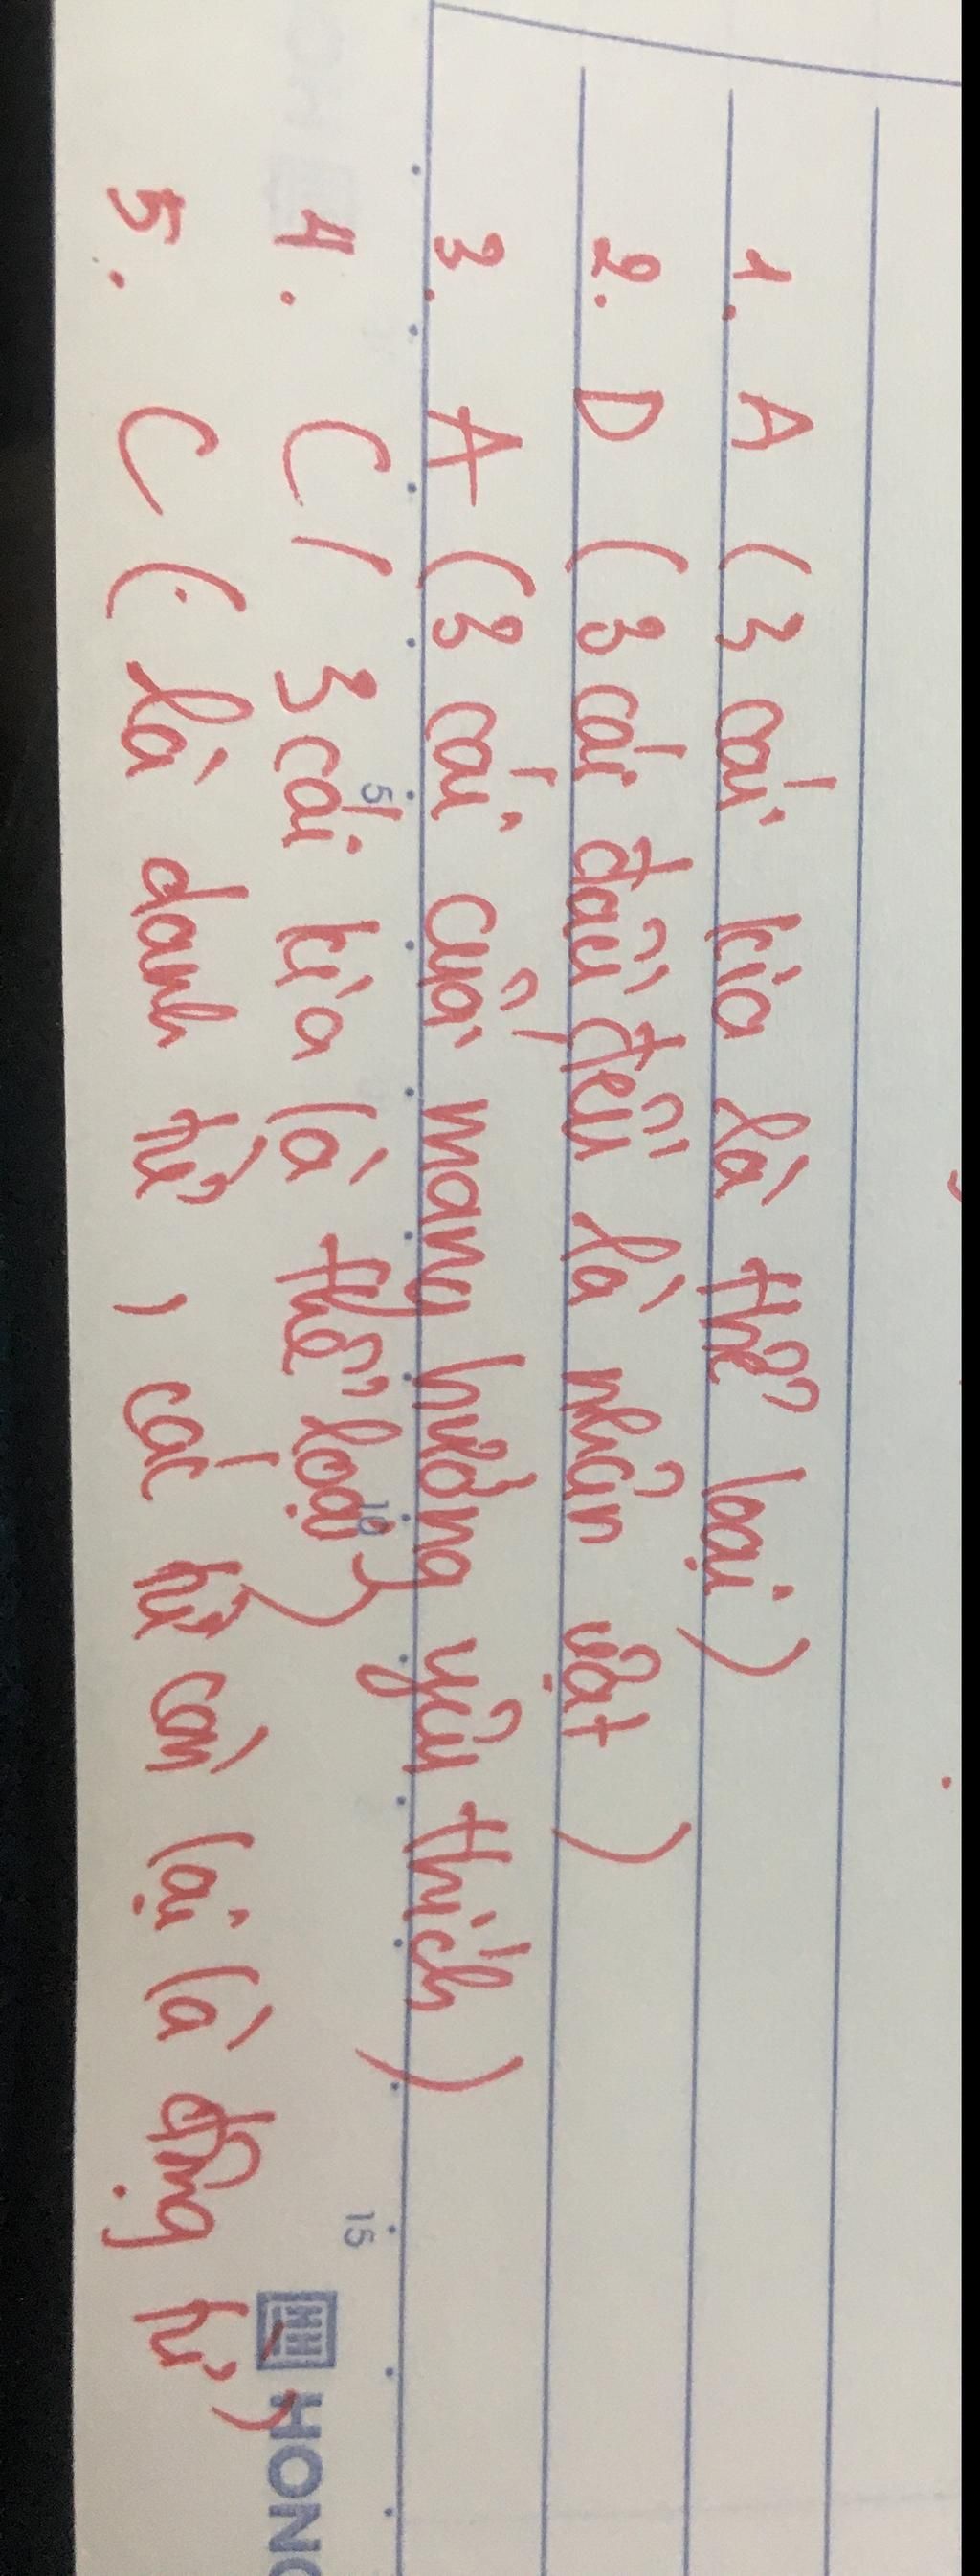 1. A (3 cái kia là thể loại)
2. D (3 cái đầu đều là nhân vật)
3. A (3 cái cuối mang hướng yêu thích)
4. C ( 3 cái kia là thể loại)
5. C ( là danh từ, các từ còn lại là động từ)
5 10 15 HONG